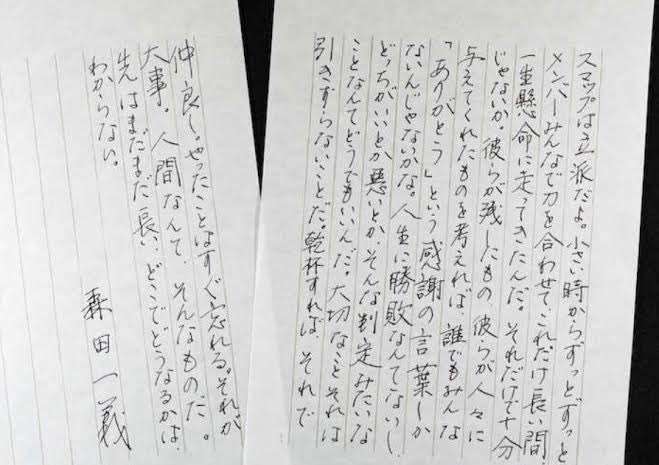 スマップは立派だよ。小さい時からずっとずっと
メンバーみんなで力を合わせて、これだけ長い間
一生懸命に走ってきたんだ。それだけで十分
じゃないか。彼らが残したもの彼らが人々に
与えてくれたものを考えれば、誰でもみんな
「ありがとう」という感謝の言葉しか
ないんじゃないかな。人生に勝敗なんてないし、
どっちがいいとか悪いとか、そんな判定みたいな
ことなんてどうでもいいんだ。大切なことそれは
引きずらないことだ。乾杯すれば、それで
仲良し。やったことはすぐ忘れる。それが
大事。人間なんて、そんなものだ。
先はまだまだ長い、どこでどうなるかは、
わからない。
森田一義